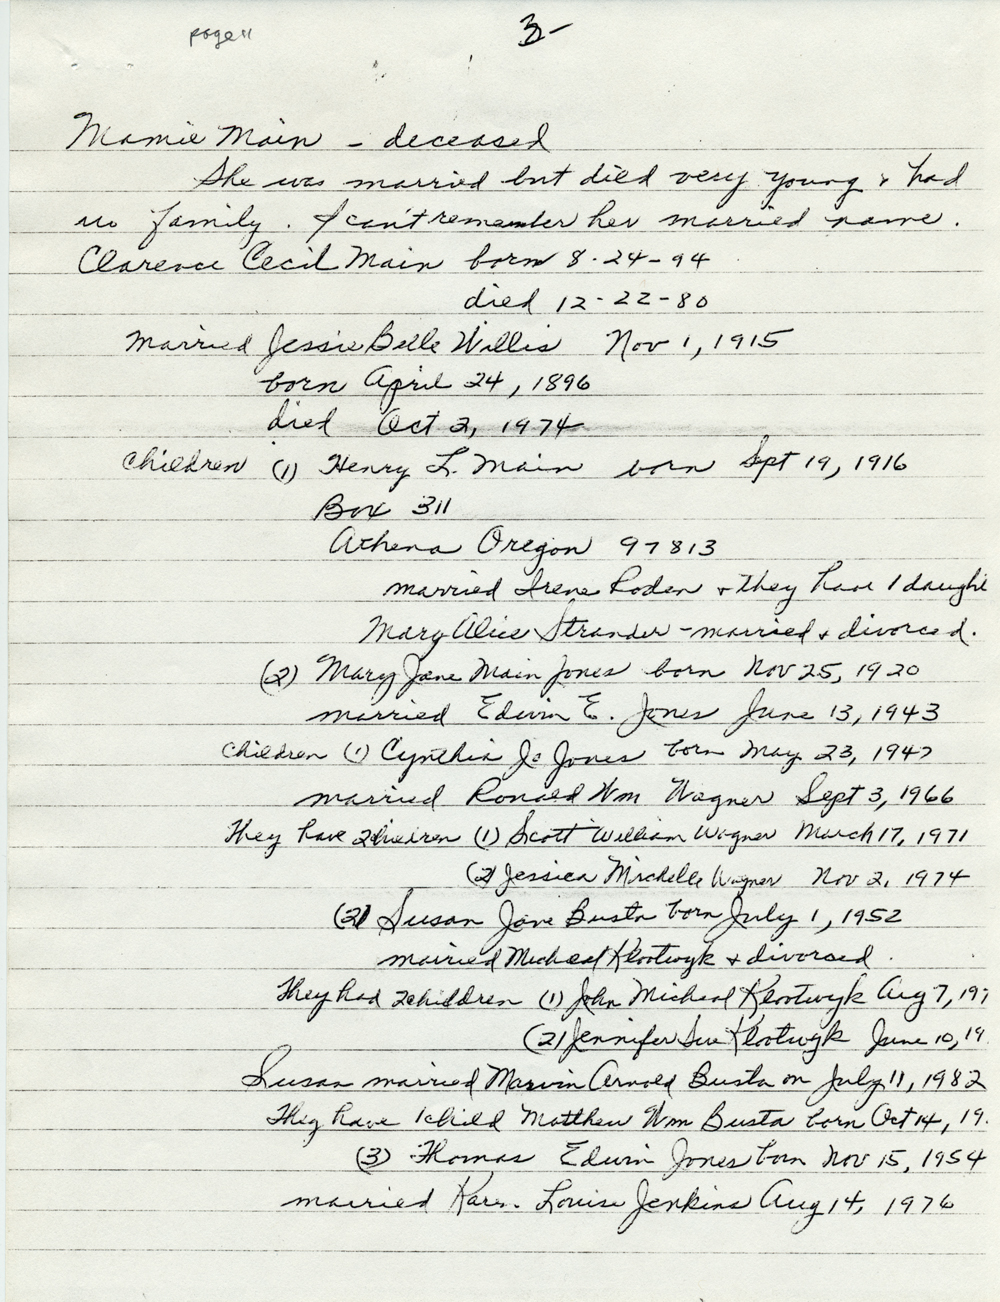 page 11
3-
Mamie Main - deceased
She was married but died very young & had
no family. I can't remember her married name.
Clarence Cecil Main born 8-24-94
died 12-22-80
married Jessie Belle Willis Nov 1, 1915
born April 24, 1896
died Oct 2, 1974
children (1) Henry L. Main born Sept 19, 1916
Box 311
Athena Oregon 97813
married Irene Roden & they have 1 daught
Mary Alice Strander - married & divorced.
(2) Mary Jane Main Jones born Nov 25, 1920
married Edwin E. Jones June 13, 1943
children (1) Cynthia Jo Jones born May 23, 1947
married Ronald Wm Wagner Sept 3, 1966
They have 2 children (1) Scott William Wagner March 17, 1971
(2) Jessica Michelle Wagner Nov 2, 1974
(2) Susan Jane Busta born July 1, 1952
married Micheal Klootwyk & divorced.
They had 2 children (1) John Micheal Klootwyk Aug 7, 197
(2) Jennifer Sue Klootwyk June 10, 19
Susan married Marvin Arnold Busta on July 11, 1982
They have 1 child Matthew Wm Busta born Oct 14, 19
(3) Thomas Edwin Jones born Nov 15, 1954
married Karen Louise Jenkins Aug 14, 1976